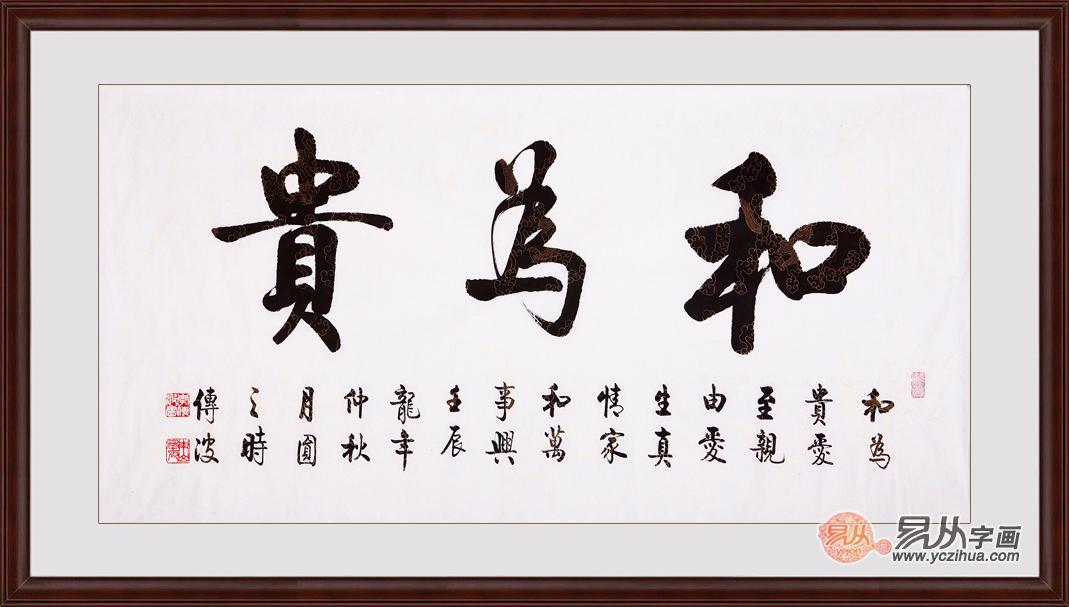 和為貴
和為
貴愛
至親
由愛
生真
情家
和萬
事興
壬辰
龍年
仲秋
月圓
之時
傳波
易从
yejon
易从字画
www.yczihua.com